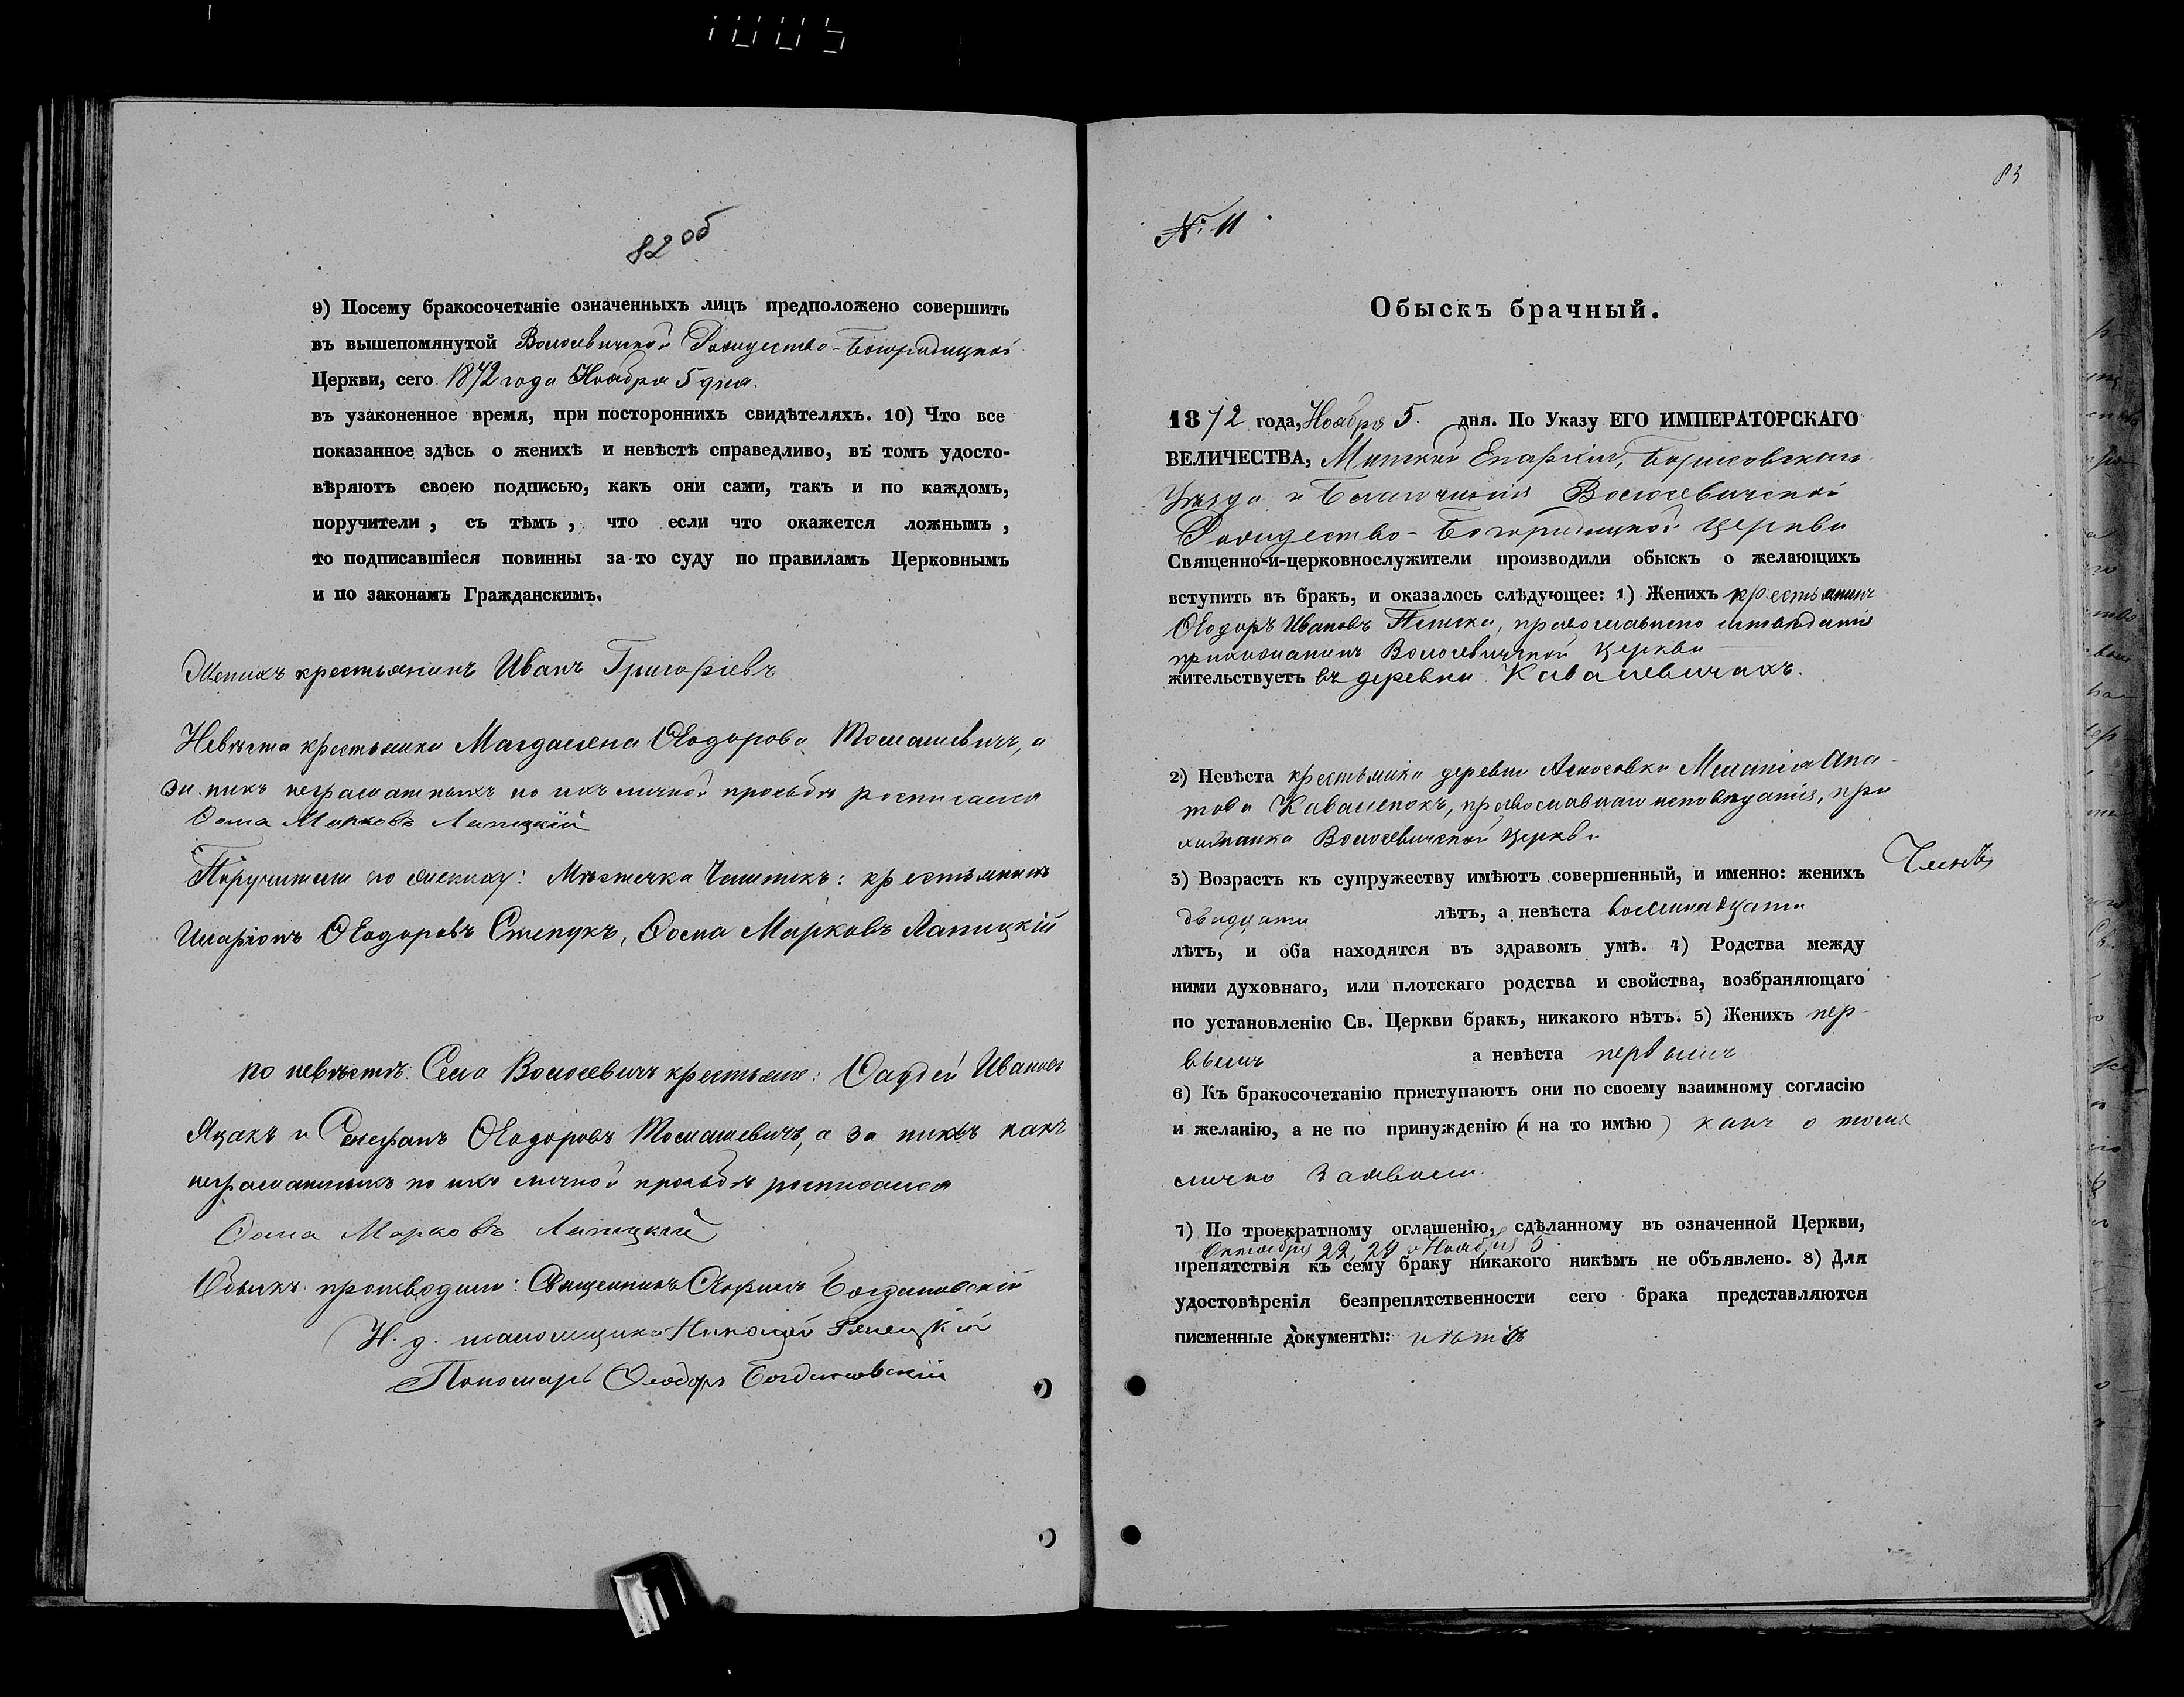 82 об
9) Посему бракосочетаніе означенныхъ лицъ предположено совершить
въ вышепомянутой Волосевичской Рождество-Богородицкой
Церкви, сего 1872 года Ноября 5 дня.
въ узаконенное время, при постороннихъ свидѣтеляхъ. 10) Что все
показанное здѣсь о женихѣ и невѣстѣ справедливо, въ томъ удосто-
вѣряютъ своею подписью, какъ они сами, такъ и по каждомъ,
поручители, съ тѣмъ, что если что окажется ложнымъ,
то подписавшіеся повинны за то суду по правиламъ Церковнымъ
и по законамъ Гражданскимъ.
Женихъ крестьянинъ Иванъ Григоріевъ
Невѣста крестьянка Магдалена Ѳеодорова Томашевичъ, а
за нихъ неграматныхъ по ихъ личной прозьбѣ росписался
Ѳома Марковъ Лапицкій
Поручители по жениху: Мѣстечка крестьянинъ
Иларіонъ Ѳеодоровъ Степукъ, Ѳома Марковъ Лапицкій
по невѣстѣ: Села Волосевичъ крестьяне: Ѳаддей Ивановъ
Яцакъ и Стефанъ Ѳеодоровъ Томашевичъ, а за нихъ какъ
неграматныхъ по ихъ личной прозьбѣ росписался
Ѳома Марковъ Лапицкій
Обыскъ производили: Священникъ Богдановскій
И. д. псаломщика Николай
Пономарь Ѳеодоръ Богдановскій
83
№ 11
Обыскъ брачный.
1872 года, Ноября 5. дня. По Указу ЕГО ИМПЕРАТОРСКАГО
ВЕЛИЧЕСТВА, Минской Епархіи, Борисовскаго
Уѣзда и Благочинія Волосевичской
Рождество-Богородицкой Церкви
Священно-и-церковнослужители производили обыскъ о желающихъ
вступить въ бракъ, и оказалось слѣдующее: 1) Женихъ крестьянинъ
Ѳеодоръ Ивановъ православнаго исповѣданія
прихожанинъ Волосевичской Церкви
жительствуетъ въ деревни Кавалевичахъ.
2) Невѣста крестьянка деревни Меланія Ипа-
това Каваленокъ, православнаго исповѣданія, при
хожанка Волосевичской Церкви
3) Возрастъ къ супружеству имѣютъ совершенный, и именно: женихъ
двадцати лѣтъ, а невѣста восемнадцати
лѣтъ, и оба находятся въ здравомъ умѣ. 4) Родства между
ними духовнаго, или плотскаго родства и свойства, возбраняющаго
по установленію Св. Церкви бракъ, никакого нѣтъ. 5) Женихъ пер-
вымъ а невѣста первымъ
6) Къ бракосочетанію приступаютъ они по своему взаимному согласію
и желанію, а не по принужденію (и на то имѣю) какъ о томъ
лично заявили.
7) По троекратному оглашенію, сдѣланному въ означенной Церкви,
Октября 22, 29 и Ноября 5
препятствія къ сему браку никакого никѣмъ не объявлено. 8) Для
удостовѣренія безпрепятственности сего брака представляются
писменные документы: